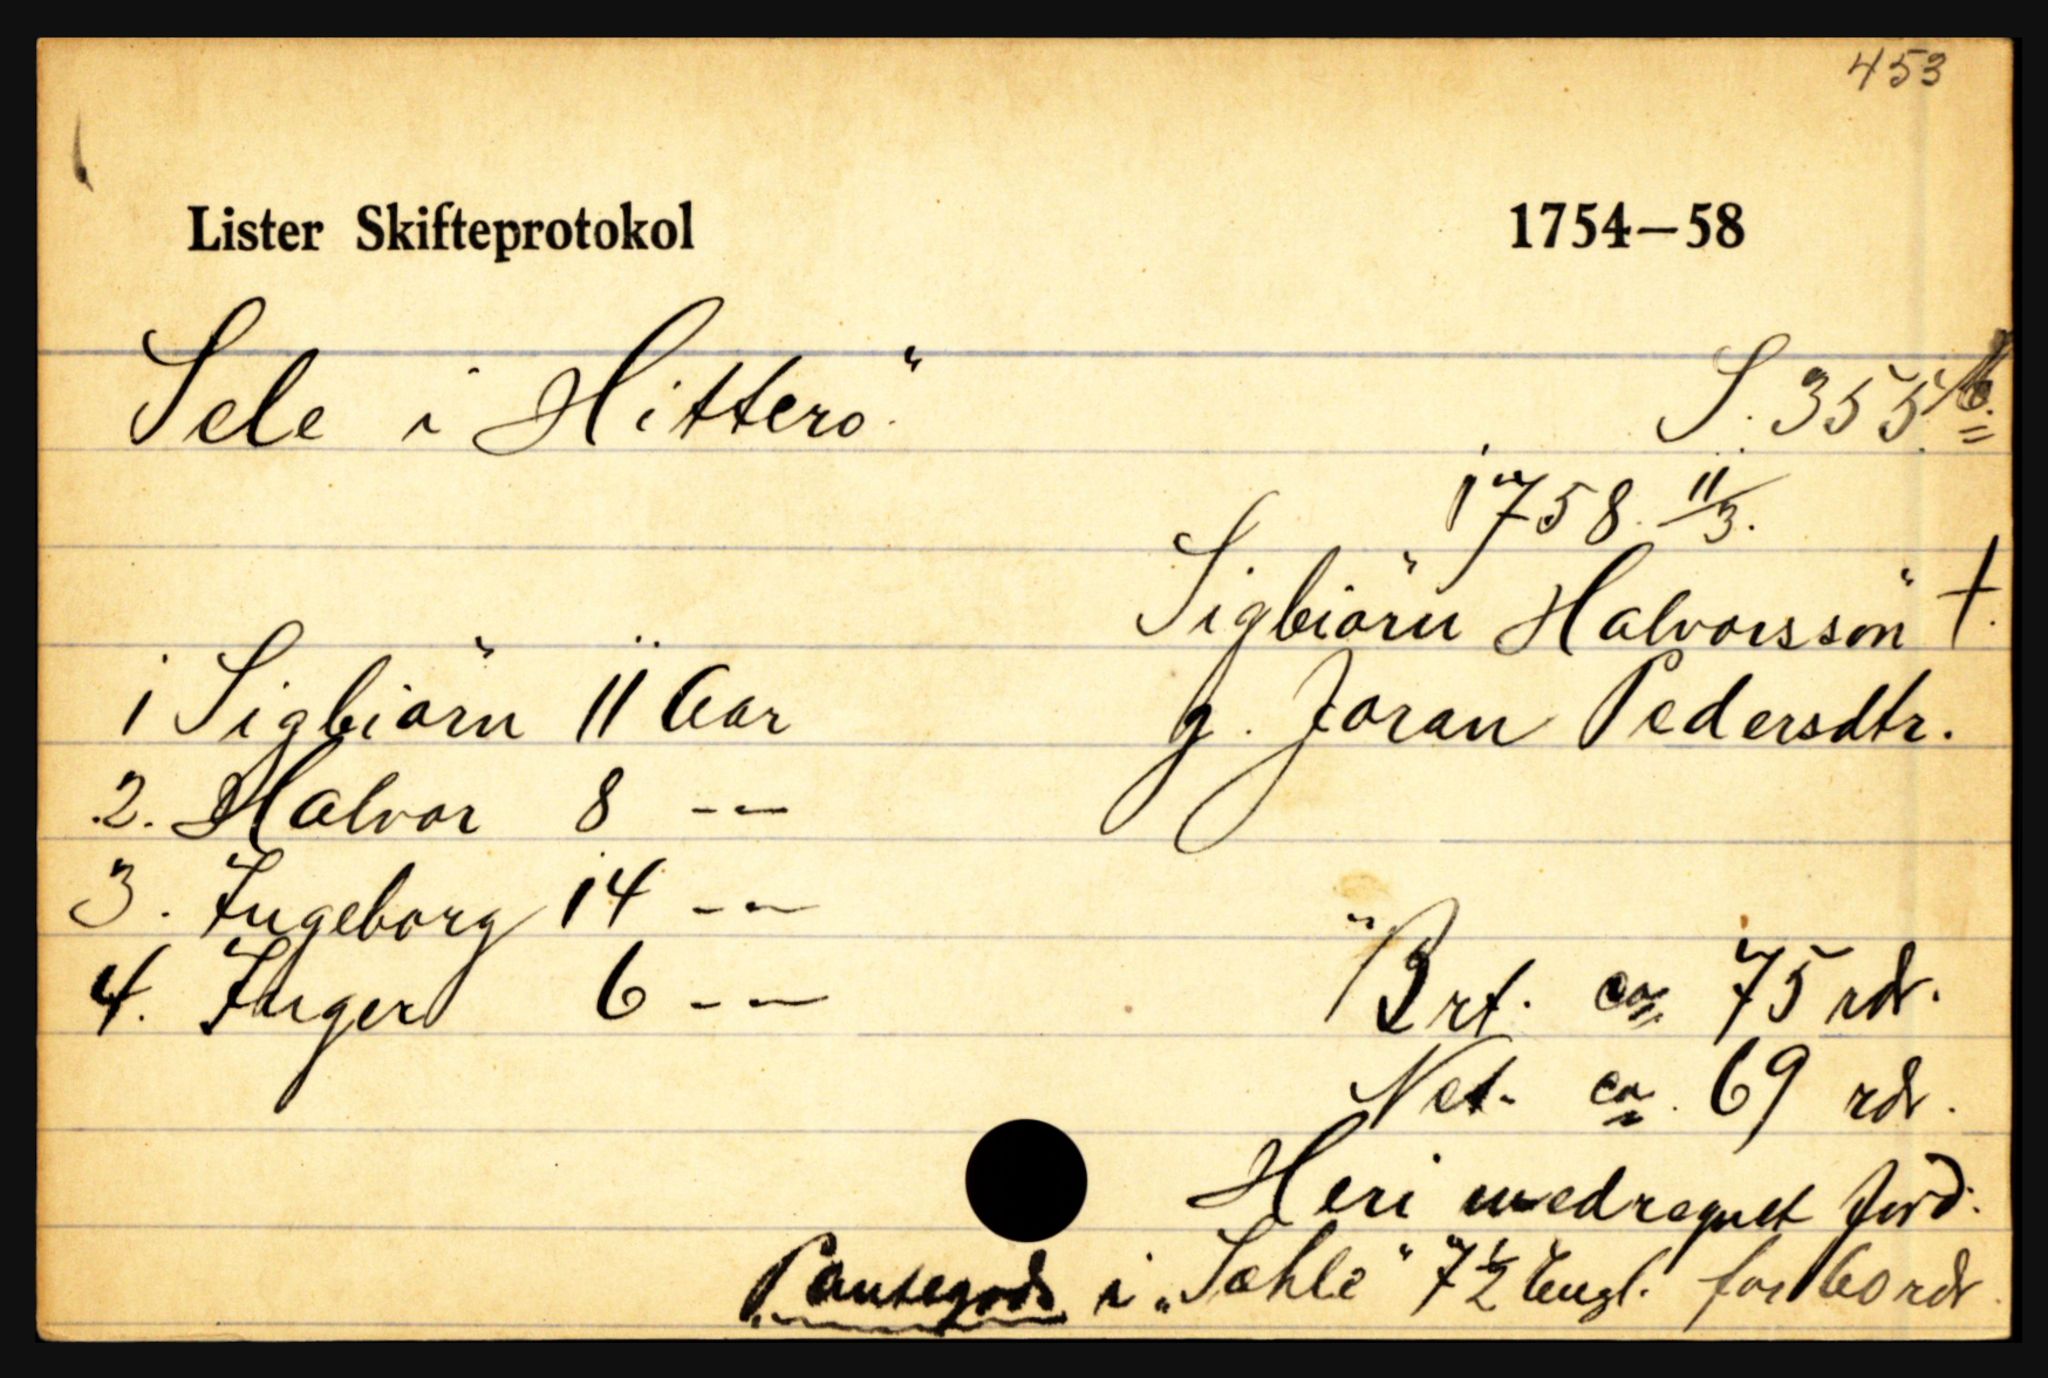 453
Lister Skifteprotokol 1754—58
Sele i Hitterö S. 355
1758 11/3.
Sigbiörn Halvorssön †.
g. Joran Pedersdtr.
1 Sigbiörn 11 Aar
2. Halvor 8 -–
3. Ingeborg 14 -–
4. Inger 6 -–
Brt. ca 75 rdr.
Net. ca. 69 rdr.
Heri medregnet Jord:
Pantegods i „Sæhle" 7½ Engl. for 60 rdr